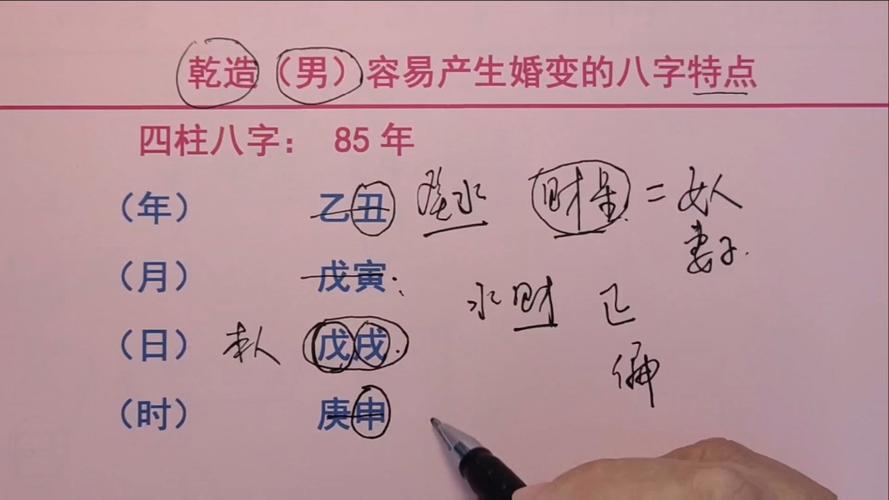 乾造（男）容易产生婚变的八字特点
四柱八字： 85 年
（年） 乙丑 癸水 财星 = 女人
妻子.
（月） 戊寅
水财 正
（日） 本人 戊戌
偏
（时） 庚申